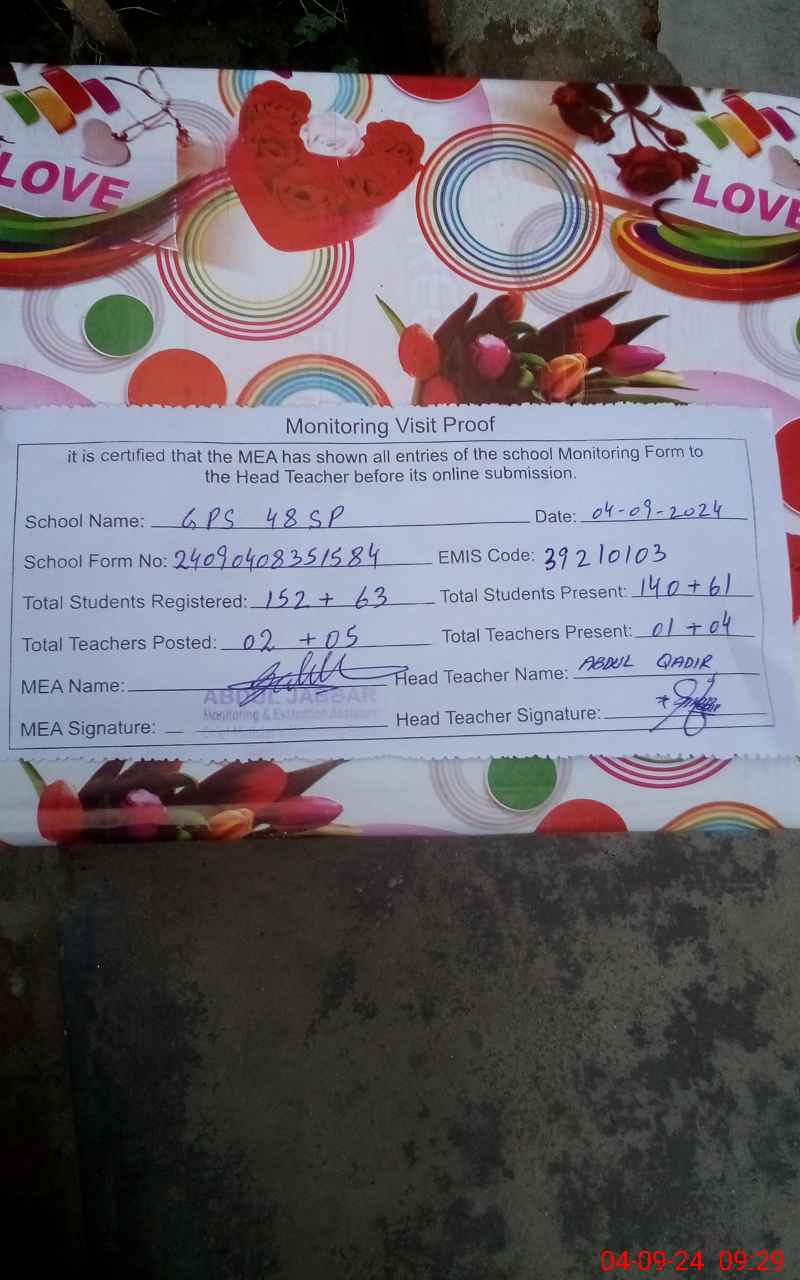 LOVE
LOVE
Monitoring Visit Proof
it is certified that the MEA has shown all entries of the school Monitoring Form to
the Head Teacher before its online submission.
School Name: GPS 48 SP Date: 04-09-2024
School Form No: 24090408351584 EMIS Code: 39210103
Total Students Registered: 152 + 63 Total Students Present: 140 + 61
Total Teachers Posted: 02 + 05 Total Teachers Present: 01 + 04
MEA Name: Head Teacher Name: ABDUL QADIR
ABDUL JABBAR
Monitoring & Evaluation Assistant
MEA Signature: Head Teacher Signature:
04-09-24 09:29